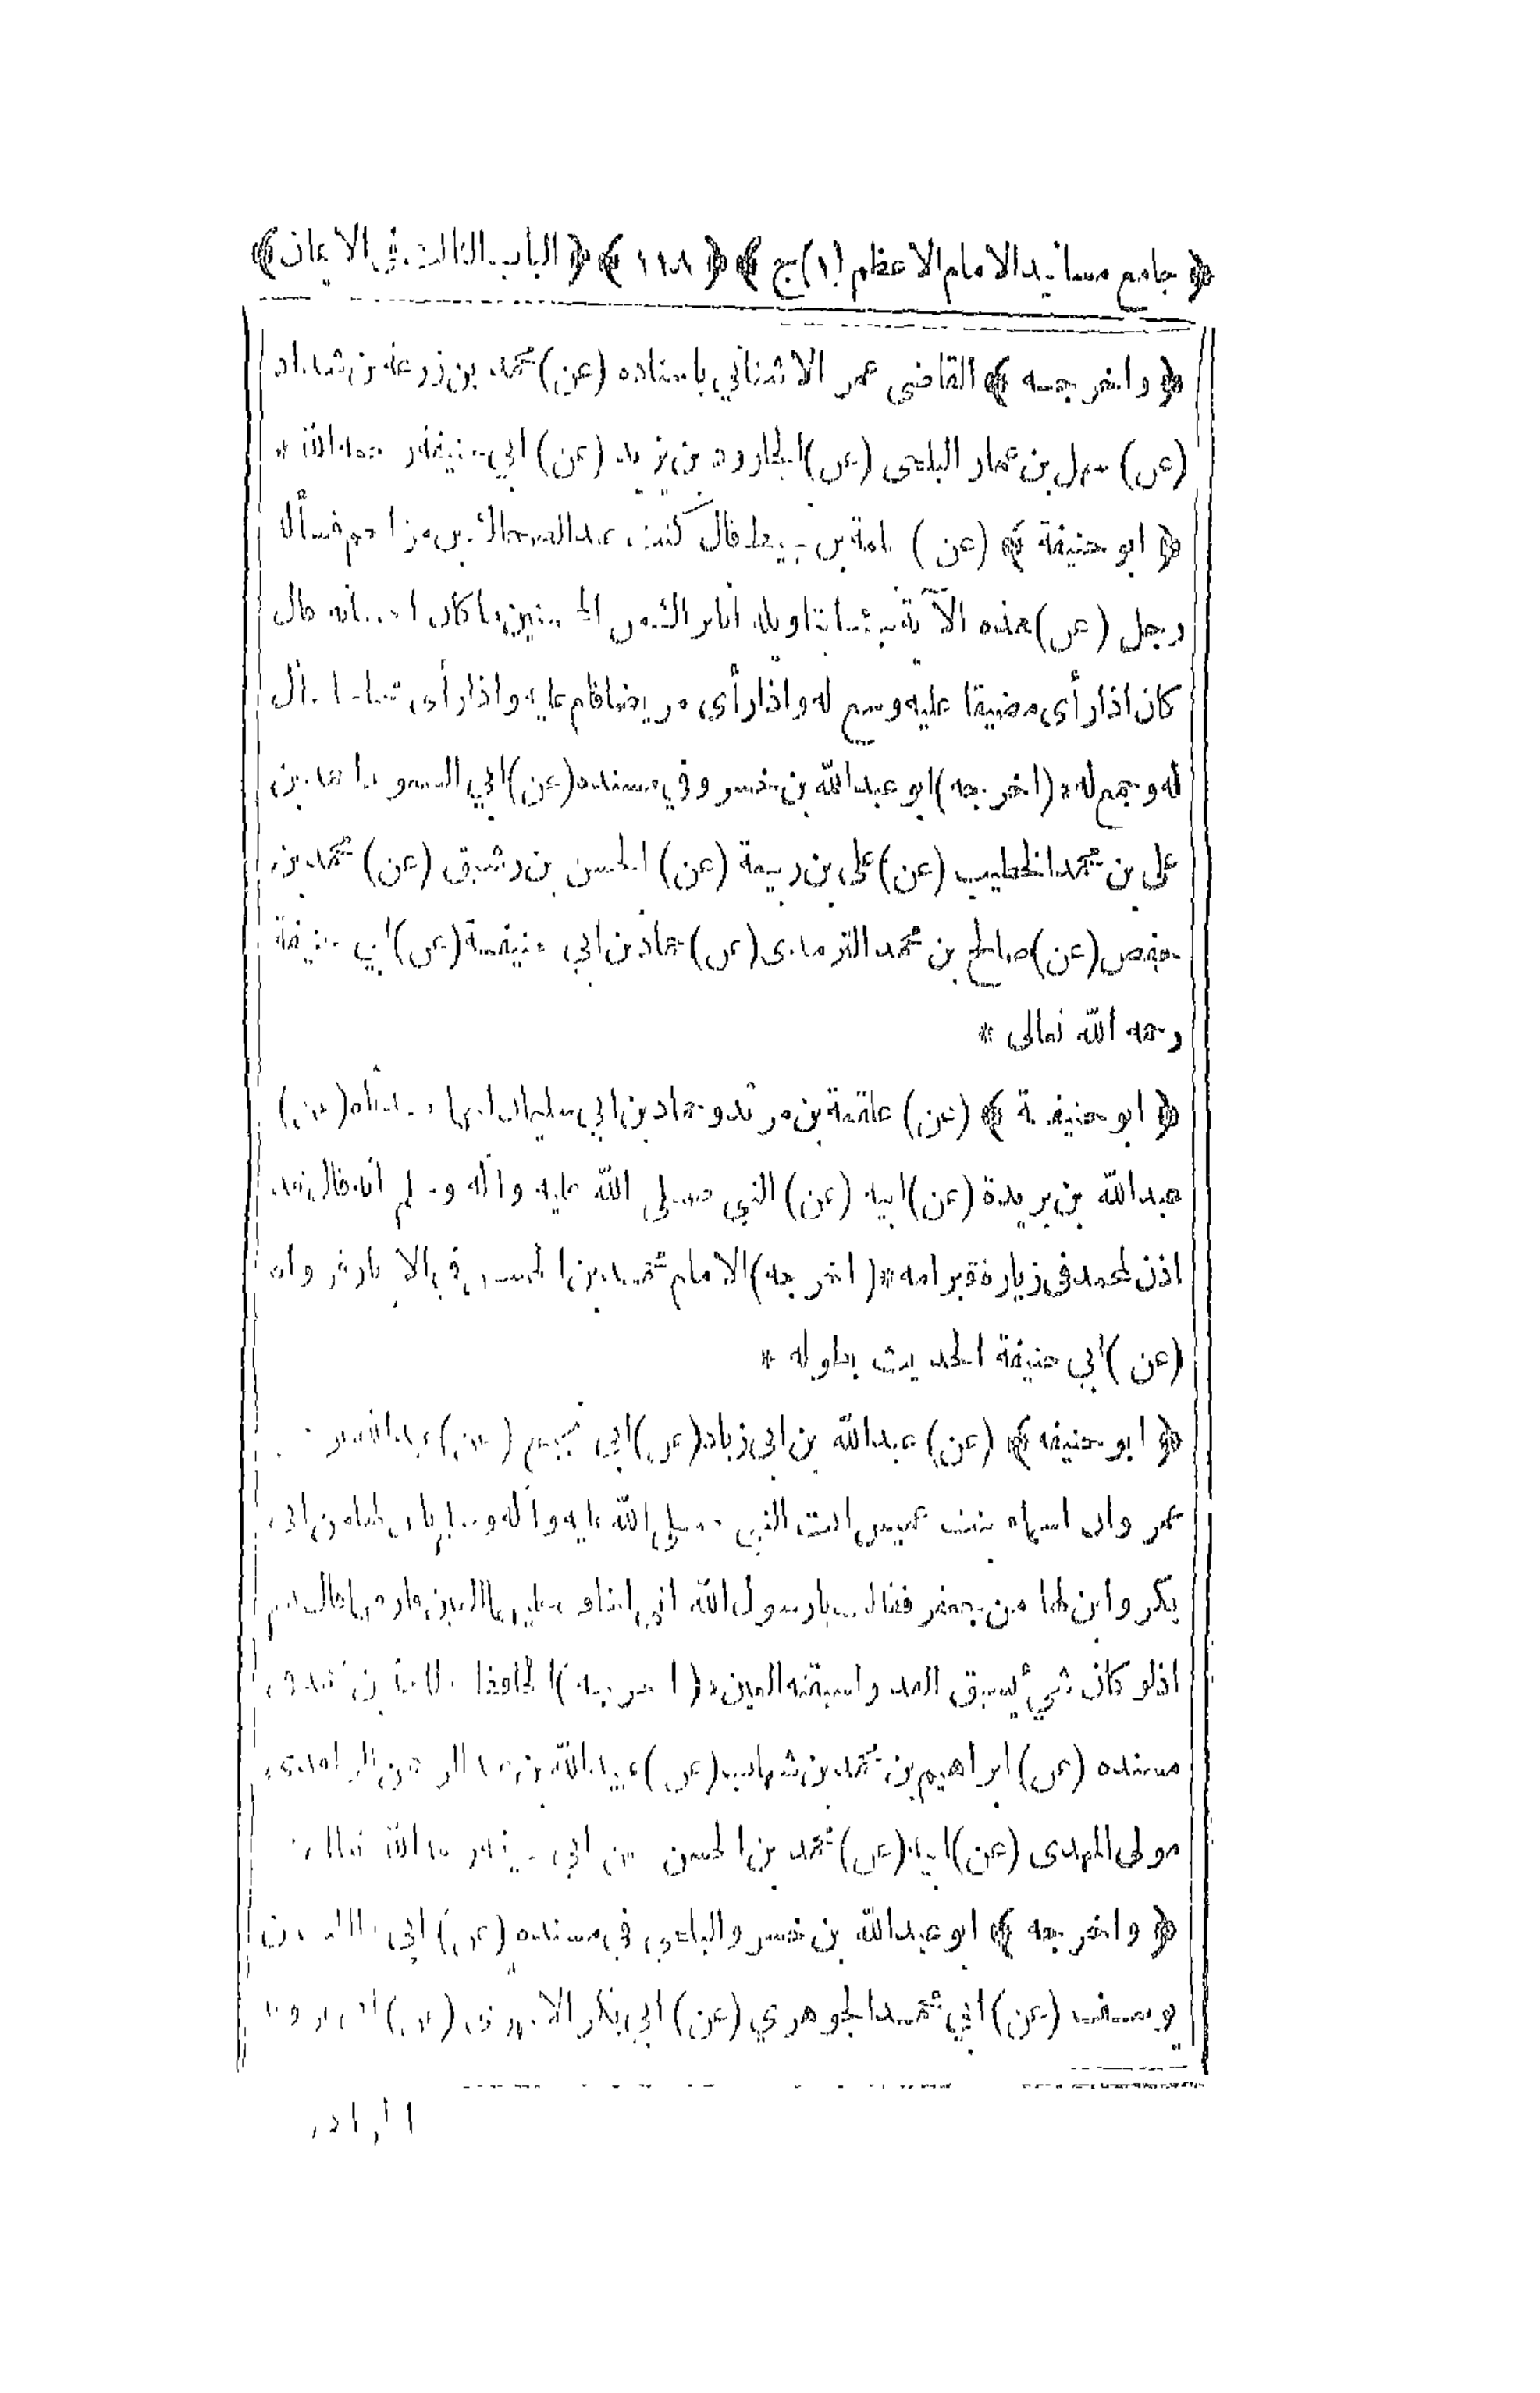 ﴿ جامع مسانيد الامام الاعظم (١) ج ﴾ ﴿ ١١٨ ﴾ ﴿ الباب الثالث في الايمان ﴾
﴿ واخرجه ﴾ القاضي عمر الاشناني باسناده (عن) محمد بن زرعة بن شداد
(عن) سهل بن عمار (عن) الجارود بن يزيد (عن) ابي حنيفة رحمه الله *
﴿ ابو حنيفة ﴾ (عن) قال كنت عند الضحاك بن مزاحم فسأله
رجل (عن) هذه الآية نبئنا بتأويله انا نراك من المحسنين ما كان احسانه قال
كان اذا رأى مضيقا عليه وسع له واذا رأى مريضا قام عليه واذا رأى
له وجمع له * (اخرجه) ابو عبدالله بن خسرو في مسنده (عن) ابي احمد بن
علي بن محمد الخطيب (عن) علي بن ربيعة (عن) الحسن بن رشيق (عن) محمد بن
حفص (عن) صالح بن محمد الترمذي (عن) حماد بن ابي حنيفة (عن) ابي حنيفة
رحمه الله تعالى *
﴿ ابو حنيفة ﴾ (عن) علقمة بن مرثد وحماد بن ابي سليمان (عن)
عبدالله بن بريدة (عن) ابيه (عن) النبي صلى الله عليه وآله وسلم انه قال قد
اذن لمحمد في زيارة قبر امه * (اخرجه) الامام محمد بن الحسن في الآثار فرواه
(عن) ابي حنيفة الحديث بطوله *
﴿ ابو حنيفة ﴾ (عن) عبدالله بن ابي زياد (عن) ابي نجيح (عن) عبدالله بن
عمر وان اسماء بنت عميس اتت النبي صلى الله عليه وآله وسلم بابن لها من ابي
بكر وابن لها من جعفر فقالت يا رسول الله اني اتخوف عليهما العين قال نعم
اذ لو كان شيء يسبق القدر لسبقته العين * (اخرجه) الحافظ طلحة بن محمد في
مسنده (عن) ابراهيم بن محمد بن شهاب (عن) عبدالله بن عبد الرحمن
مولى المهدي (عن) ابيه (عن) محمد بن الحسن عن ابي حنيفة رحمه الله تعالى *
﴿ واخرجه ﴾ ابو عبدالله بن خسرو البلخي في مسنده (عن) ابي بن
يوسف (عن) ابي محمد الجوهري (عن) ابي بكر الابهري (عن) ابي عروبة